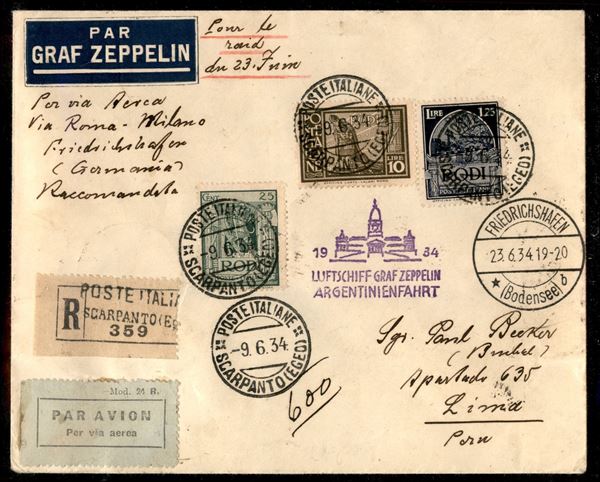 PAR
GRAF ZEPPELIN
Pour le
raid
du 23. Juin
Per via Aerea
Via Roma - Milano
Friedrichshafen
(Germania)
Raccomandata
POSTE ITALIANE
9.6.34
SCARPANTO (EGEO)
POSTE
ITALIANE
LIRE
10
LIRE
1,25
RODI
CENT
25
POSTE ITALIANE
9.6.34
SCARPANTO (EGEO)
RODI
FRIEDRICHSHAFEN
23.6.34 19-20
(Bodensee) b
19 34
LUFTSCHIFF GRAF ZEPPELIN
ARGENTINIENFAHRT
R
POSTE ITALIA
SCARPANTO (EG
359
POSTE ITALIANE
-9.6.34
SCARPANTO (EGEO)
Sgr. Paul Becker
Apartado 635
Lima
Peru
600
Mod. 24 R.
PAR AVION
Per via aerea